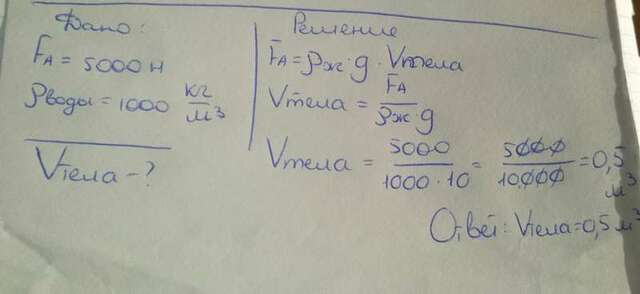 Дано:
FA = 5000 Н
ρводы = 1000 кг/м³
Vтела - ?
Решение
FA = ρж · g · Vтела
Vтела = FA / ρж · g
Vтела = 5000 / 1000 · 10 = 5000 / 10000 = 0,5 м³
Ответ: Vтела = 0,5 м³